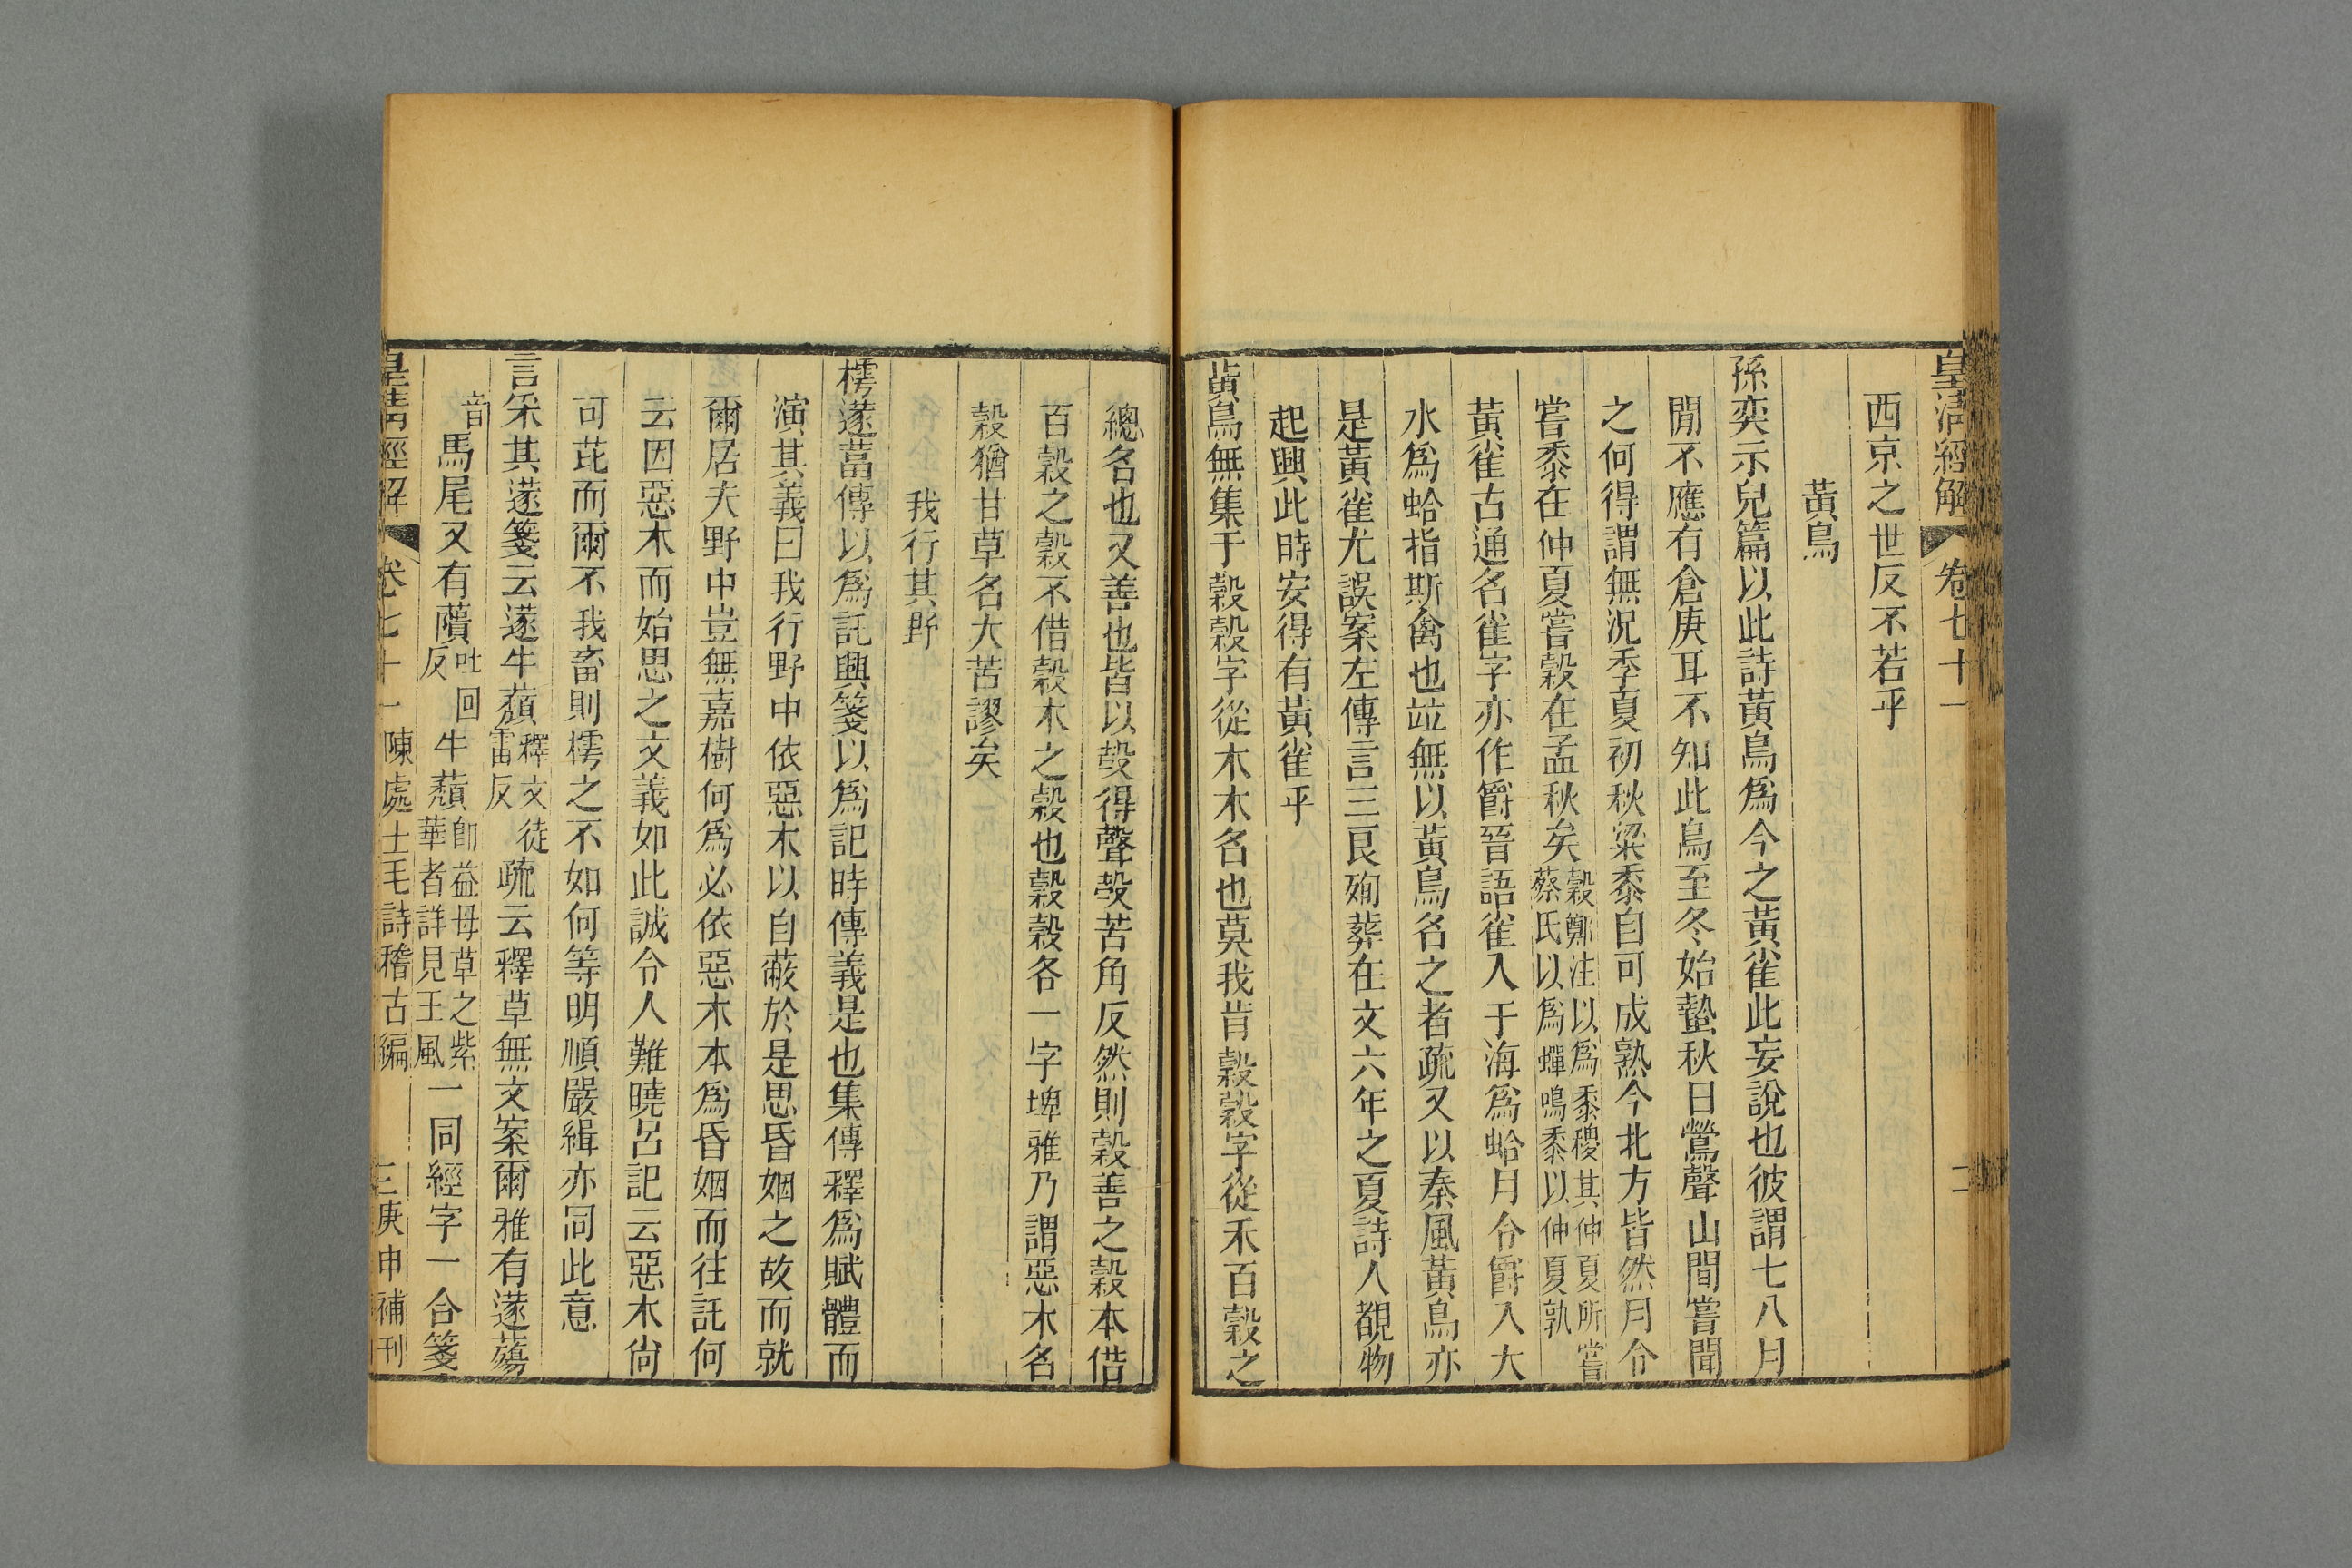 皇清經解 卷七十一 二
西京之世反不若乎
黃鳥
孫奕示兒篇以此詩黃鳥爲今之黃雀此妄說也彼謂七八月
閒不應有倉庚耳不知此鳥至冬始蟄秋日鶯聲山間嘗聞
之何得謂無況季夏初秋粱黍自可成熟今北方皆然月令
嘗黍在仲夏嘗穀在孟秋矣穀鄭注以爲黍稷其仲夏所嘗蔡氏以爲蟬鳴黍以仲夏孰
黃雀古通名雀字亦作爵晉語雀入于海爲蛤月令爵入大
水爲蛤指斯禽也竝無以黃鳥名之者疏又以秦風黃鳥亦
是黃雀尤誤案左傳言三良殉葬在文六年之夏詩人覩物
起興此時安得有黃雀乎
黃鳥無集于榖榖字從木木名也莫我肯穀穀字從禾百穀之
總名也又善也皆以㱿得聲㱿苦角反然則穀善之穀本借
百穀之穀不借榖木之榖也穀榖各一字埤雅乃謂惡木名
榖猶甘草名大苦謬矣
我行其野
樗蓫葍傳以爲託興箋以爲記時傳義是也集傳釋爲賦體而
演其義曰我行野中依惡木以自蔽於是思昏姻之故而就
爾居夫野中豈無嘉樹何爲必依惡木本爲昏姻而往託何
云因惡木而始思之文義如此誠令人難曉呂記云惡木尙
可芘而爾不我畜則樗之不如何等明順嚴緝亦同此意
言采其蓫箋云蓫牛蘈釋文徒雷反疏云釋草無文案爾雅有蓫薚
音馬尾又有藬吐回反牛蘈卽益母草之紫華者詳見王風一同經字一合箋
皇清經解 卷七十一 陳處士毛詩稽古編 三 庚申補刊